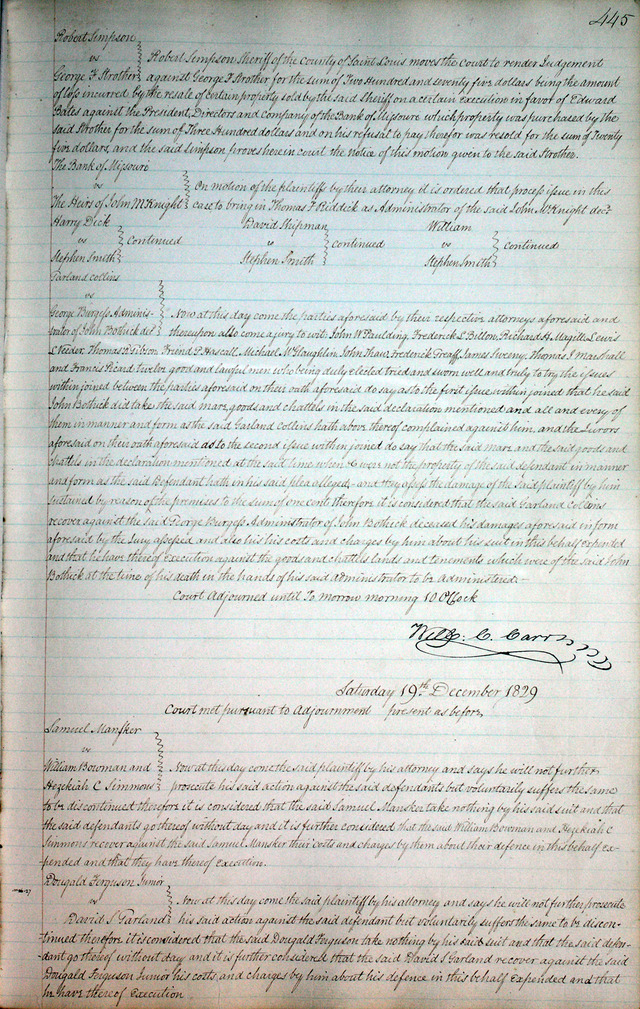 445
Robert Simpson
vs
George F Strother
Robert Simpson Sheriff of the county of Saint Louis moves the court to render Judgement
against George F Strother for the sum of Two Hundred and seventy five dollars being the amount
of loss incurred by the resale of certain property sold by the said Sheriff on a certain execution in favor of Edward
Bates against the President, Directors and company of the Bank of Missouri which property was purchased by the
said Strother for the sum of Three Hundred dollars and on his refusal to pay therefor was resold for the sum of Twenty
five dollars, and the said Simpson proves here in court the notice of this motion given to the said Strother.
The Bank of Missouri
vs
The Heirs of John McKnight
On motion of the plaintiffs by their attorney it is ordered that process issue in this
case to bring in Thomas F Riddick as Administrator of the said John McKnight decd
Harry Dick
vs
Stephen Smith
continued
David Shipman
vs
Stephen Smith
continued
William
vs
Stephen Smith
continued
Garland Collins
vs
George Burgess Adminis-
trator of John Bothick dcd
Now at this day come the parties aforesaid by their respective attorneys aforesaid and
thereupon also come a jury to wit, John W Paulding, Frederick L Billon, Richard H Magill, Lewis
L Veeder, Thomas R Gibson, Friend P Hascall, Michael McGlaughlin, John Shaw, Frederick Greaff, James Sweeny, Thomas J Marshall
and Francis Picard twelve good and lawful men who being duly elected tried and sworn well and truly to try the issues
within joined between the parties aforesaid on their oath aforesaid do say as to the first issue within joined that he said
John Bothick did take the said mare, goods and chattels in the said declaration mentioned and all and every of
them in manner and form as the said Garland Collins hath above thereof complained against him, and the Jurors
aforesaid on their oath aforesaid as to the second issue within joined do say that the said mare and the said goods and
chattels in the declaration mentioned at the said time when &c were not the property of the said defendant in manner
and form as the said Defendant hath in his said plea alleged, and they assess the damage of the said plaintiff by him
sustained by reason of the premises to the sum of one cent therefore it is considered that the said Garland Collins
recover against the said George Burgess Administrator of John Bothick deceased his damages aforesaid in form
aforesaid by the Jury assessed and also his costs and charges by him about his suit in this behalf expended
and that he have thereof execution against the goods and chattels lands and tenements which were of the said John
Bothick at the time of his death in the hands of his said administrator to be Administered.
Court Adjourned until To morrow morning 10 O'Clock
Will: C. Carr
Saturday 19th December 1829
Court met pursuant to Adjournment present as before,
Samuel Mansker
vs
William Bowman and
Hezekiah C Simmons
Now at this day come the said plaintiff by his attorney and says he will not further
prosecute his said action against the said defendants but voluntarily suffers the same
to be discontinued therefore it is considered that the said Samuel Mansker take nothing by his said suit and that
the said defendants go thereof without day and it is further considered that the said William Bowman and Hezekiah C
Simmons recover against the said Samuel Mansker their costs and charges by them about their defence in this behalf ex-
pended and that they have thereof execution.
Dougald Ferguson Junior
vs
David S Garland
Now at this day come the said plaintiff by his attorney and says he will not further prosecute
his said action against the said defendant but voluntarily suffers the same to be discon-
tinued therefore it is considered that the said Dougald Ferguson take nothing by his said suit and that the said defen-
dant go thereof without day and it is further considered that the said David S Garland recover against the said
Dougald Ferguson Junior his costs, and charges by him about his defence in this behalf expended and that
he have thereof Execution